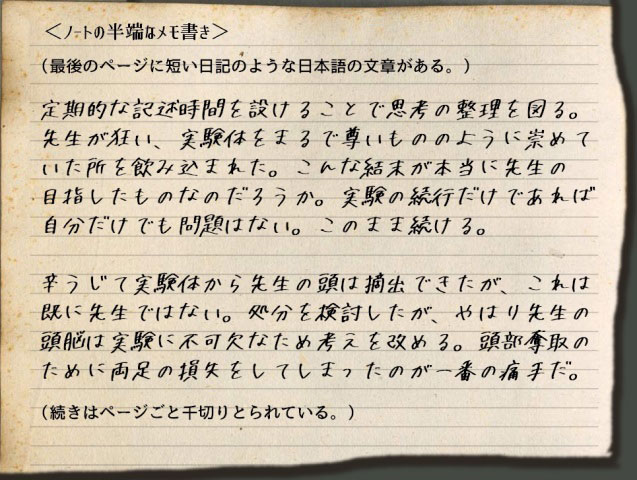 ＜ノートの半端なメモ書き＞
（最後のページに短い日記のような日本語の文章がある。）
定期的な記述時間を設けることで思考の整理を図る。
先生が狂い、実験体をまるで尊いもののように崇めて
いた所を飲み込まれた。こんな結末が本当に先生の
目指したものなのだろうか。実験の続行だけであれば
自分だけでも問題はない。このまま続ける。
辛うじて実験体から先生の頭は摘出できたが、これは
既に先生ではない。処分を検討したが、やはり先生の
頭脳は実験に不可欠なため考えを改める。頭部奪取の
ために両足の損失をしてしまったのが一番の痛手だ。
（続きはページごと千切りとられている。）